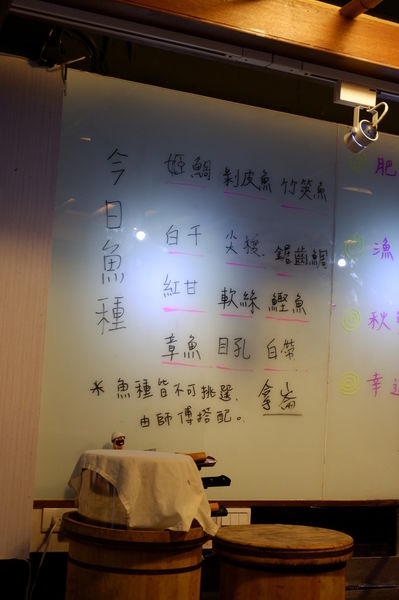 今日魚種
姬鯛 剝皮魚 竹筴魚
白干 尖梭 鋸齒鯛
紅甘 軟絲 鰹魚
章魚 目孔 白帶
拿崙
*魚種皆不可挑選、
由師傅搭配。
肥
漁
秋
幸